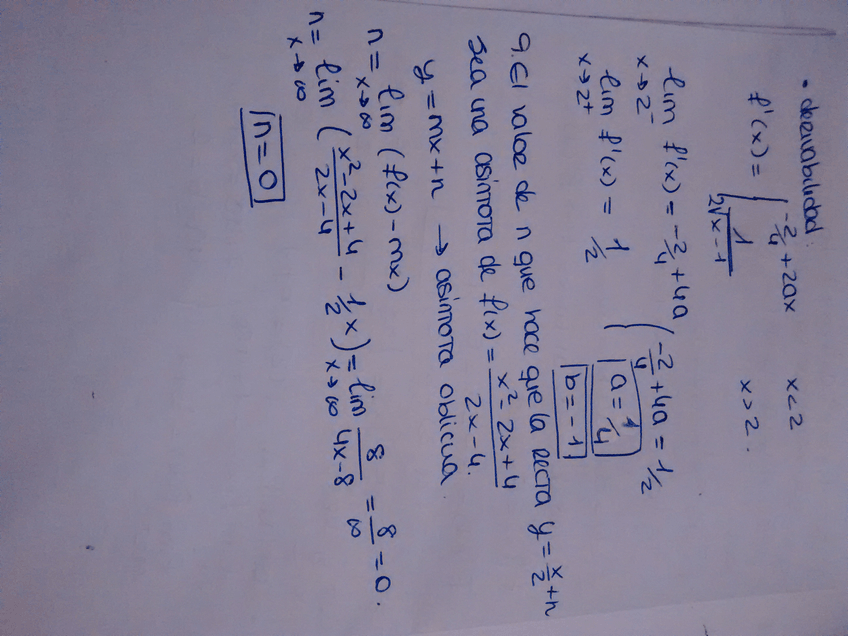 • derivabilidad:
f'(x) = { -2/4 + 2ax   x < 2
1/(2√(x-1))   x > 2.
lim x→2⁻ f'(x) = -2/4 + 4a
lim x→2⁺ f'(x) = 1/2
{ -2/4 + 4a = 1/2
a = 1/4
b = -1
9. El valor de n que hace que la recta y = x/2 + n
sea una asíntota de f(x) = (x² - 2x + 4)/(2x - 4).
y = mx + n → asíntota oblicua
n = lim x→∞ (f(x) - mx)
n = lim x→∞ ((x² - 2x + 4)/(2x - 4) - 1/2 x) = lim x→∞ 8/(4x - 8) = 8/∞ = 0.
n = 0